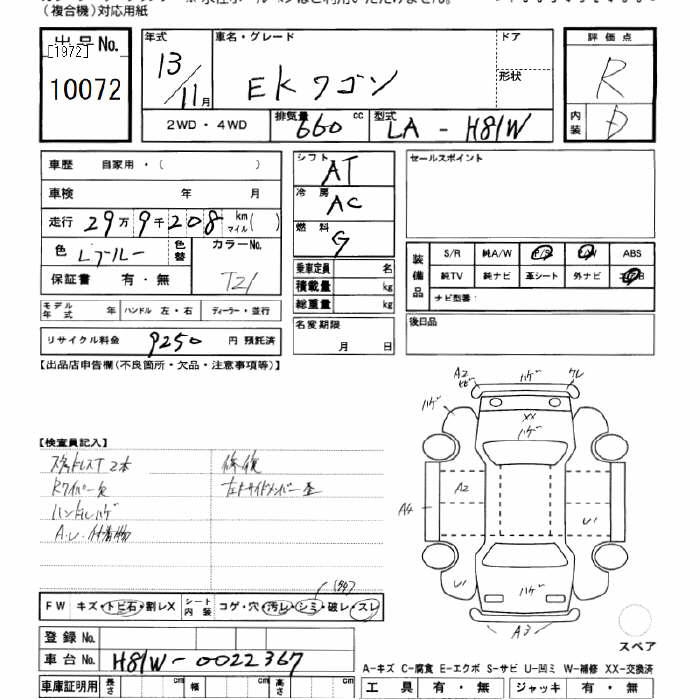 (複合機)対応用紙
出品No.
[1972]
10072
年式
13/11月
車名・グレード
EKワゴン
ドア
形状
評価点
R
内装
D
2WD・4WD
排気量 660 cc
型式 LA-H81W
車歴 自家用・( )
車検 年 月
走行 29万9千208 km マイル( )
色 Lブルー
色替
カラーNo.
T21
保証書 有・無
モデル年式 年
ハンドル 左・右
ディーラー・並行
リサイクル料金 9250 円 預託済
シフト AT
冷房 AC
燃料 G
乗車定員 名
積載量 kg
総重量 kg
名変期限
月 日
セールスポイント
装備品
S/R 純A/W P/S P/W ABS
純TV 純ナビ 革シート 外ナビ エアB
ナビ型番:
後日品
【出品店申告欄(不良箇所・欠品・注意事項等)】
【検査員記入】
スタッドレスT 2本
Rワイパー欠
ハンドルハゲ
A.U.付着物
修復
左Fサイドメンバー歪
FW キズ・トビ石・割レX
シート内装 コゲ・穴・汚レ・シミ・破レ・スレ
登録No.
車台No. H81W-0022367
車庫証明用 長さ cm 幅 cm 高さ cm
A2
ハゲ
ハゲ
XX
ハゲ
A2
A4
U1
U1
ハゲ
A3
スペア
A-キズ C-腐食 E-エクボ S-サビ U-凹ミ W-補修 XX-交換済
工具 有・無 ジャッキ 有・無